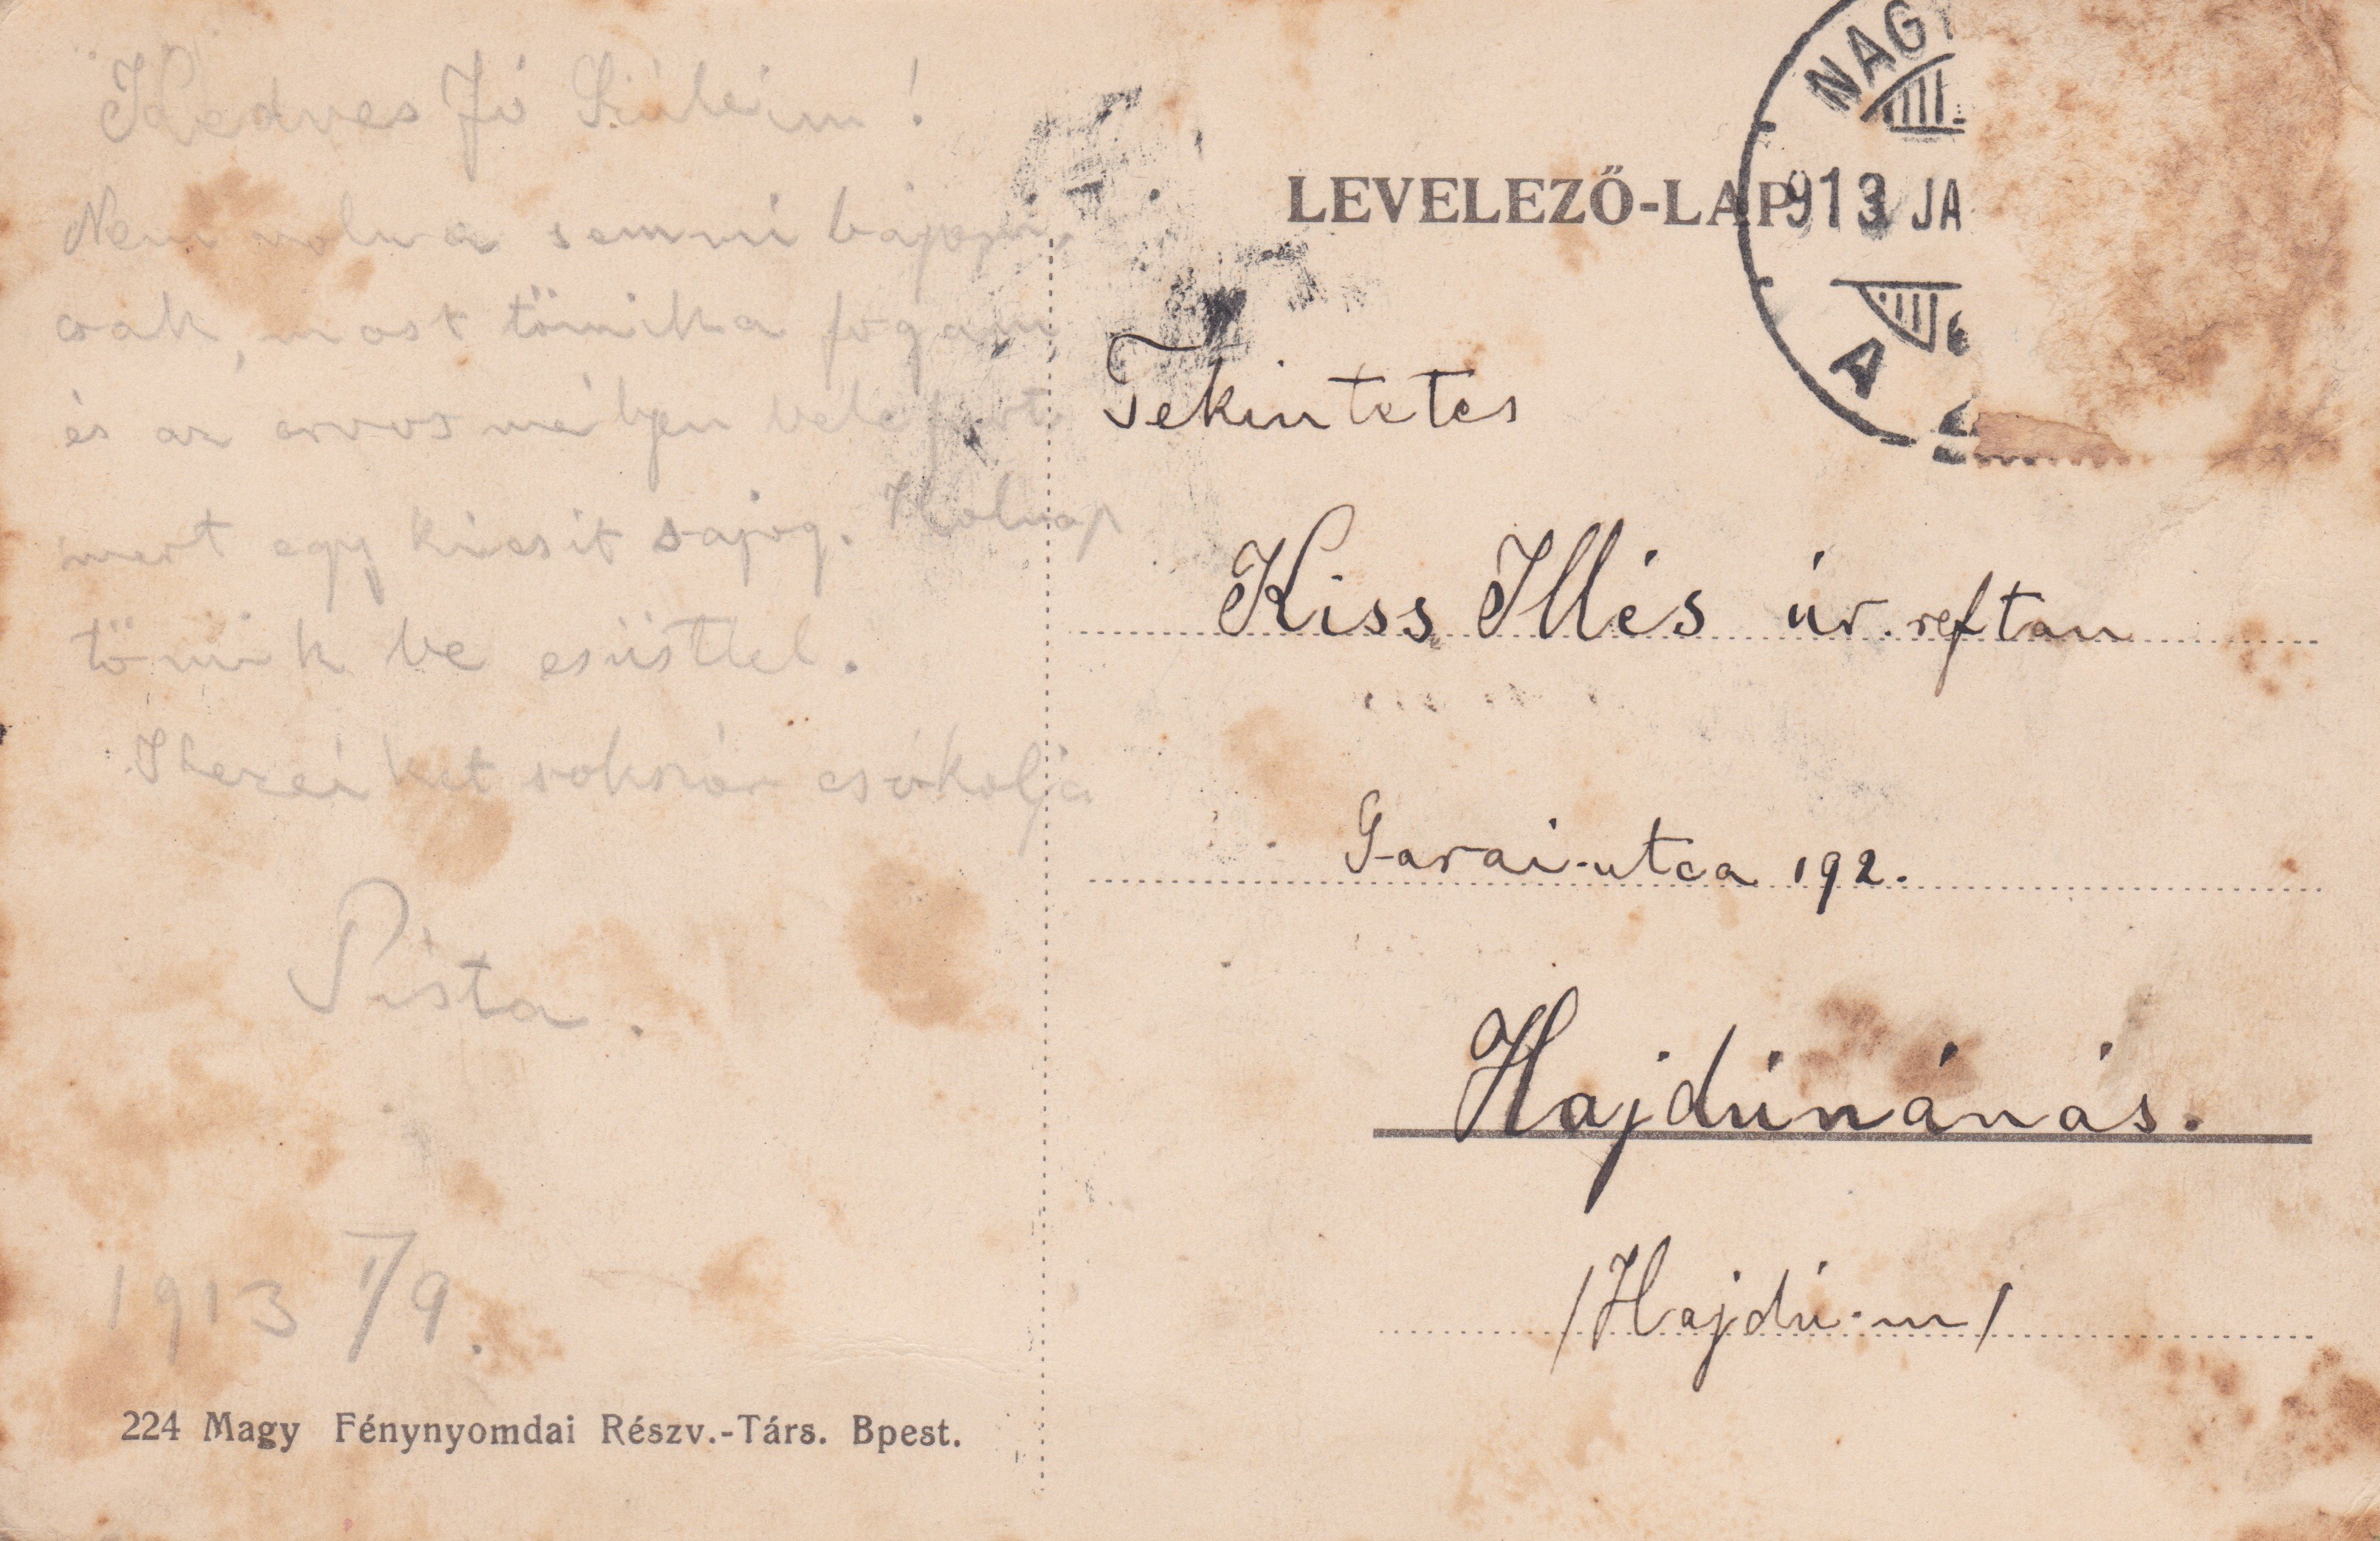 Kedves Jó Szüleim!
Nem volna semmi bajom,
csak, most tömik a fogam
és az orvos mélyen bele
mert egy kicsit sajog. Holnap
tömik be esüsttel.
két sokszor csókolja
Pista.
1913 I/9.
224 Magy Fénynyomdai Részv.-Társ. Bpest.
NAGY
LEVELEZŐ-LAP
913 JA
A
Tekintetes
Kiss Illés úr. ref tan
Garai-utca 192.
Hajdúnánás.
/Hajdú-m/